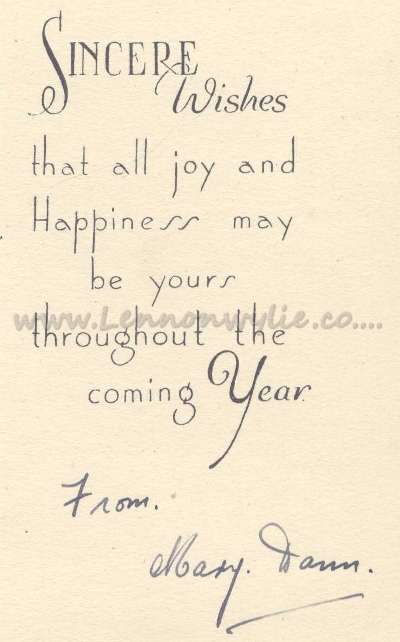 SINCERE
Wishes
that all joy and
Happiness may
be yours
www.Lennonwylie.co....
throughout the
coming Year.
From.
Mary. Dann.